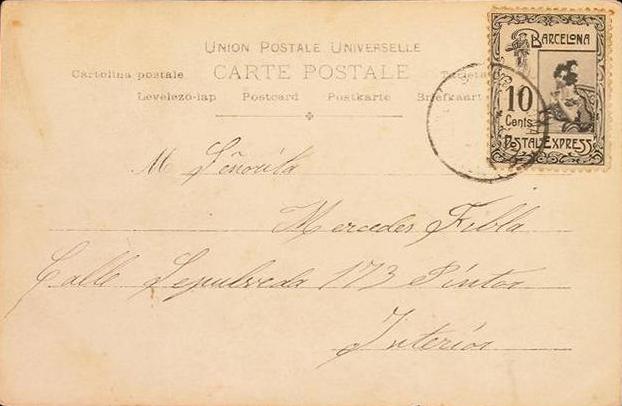 UNION POSTALE UNIVERSELLE
Cartolina postale CARTE POSTALE Tarjeta
Levelezö-lap Postcard Postkarte Briefkaart
BARCELONA
10
Cents
POSTAL EXPRESS
M Señorita
Mercedes Fibla
Calle Sepulveda 173 Pintor
Interior